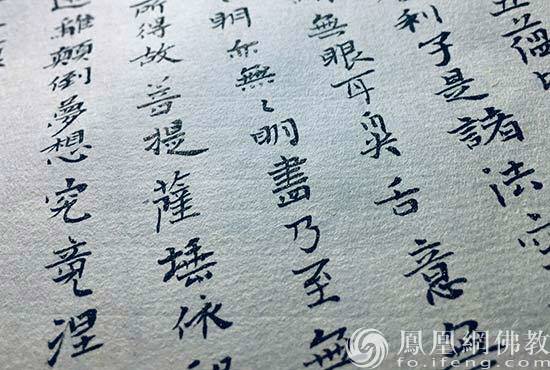 五蘊
利子是諸法空
無眼耳鼻舌意
明亦無〻明盡乃至無
所得故菩提薩埵依
遠離顛倒夢想究竟涅
鳳凰網佛教
fo.ifeng.com